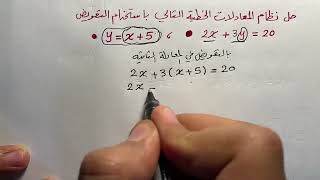 حل نظام المعادلات الخطية التالي باستخدام التعويض
• y = x + 5 ، • 2x + 3y = 20
بالتعويض في المعادلة الثانية
2x + 3(x + 5) = 20
2x